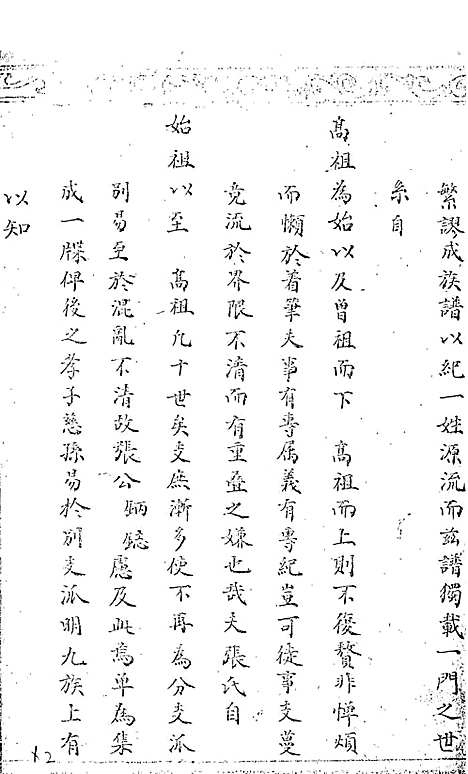 繁謬成族譜以紀一姓源流而茲譜獨載一門之世
系自
髙祖為始以及曽祖而下　髙祖而上則不復贅非憚煩
而懶於着筆夫事有專属義有專紀豈可徒事支蔓
竟流於界限不清而有重叠之嫌也哉夫張氏自
始祖以至　髙祖凢十世矣支庶漸多使不再為分支派
别易至於混亂不清故張公　鋕慮及此焉单為集
成一牒俾後之孝子慈孫易於别支派明九族上有
以知
12